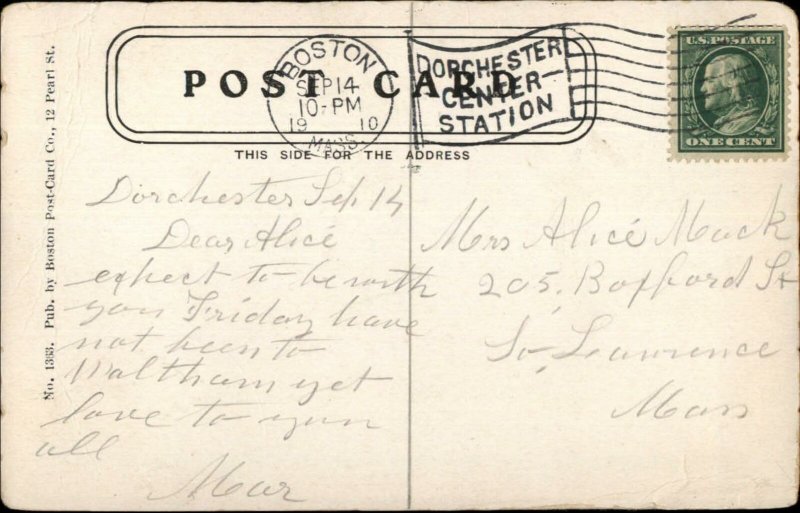 POST CARD
THIS SIDE FOR THE ADDRESS
BOSTON
SEP 14
10-PM
1910
MASS.
DORCHESTER
CENTER-
STATION
U.S. POSTAGE
ONE CENT
No. 1363. Pub. by Boston Post-Card Co., 12 Pearl St.
Dorchester Sep 14
Dear Alice
expect to be with
you Friday have
not been to
Waltham yet
love to you
all
Mrs Alice Mack
205, Boxford St
So, Lawrence
Mass